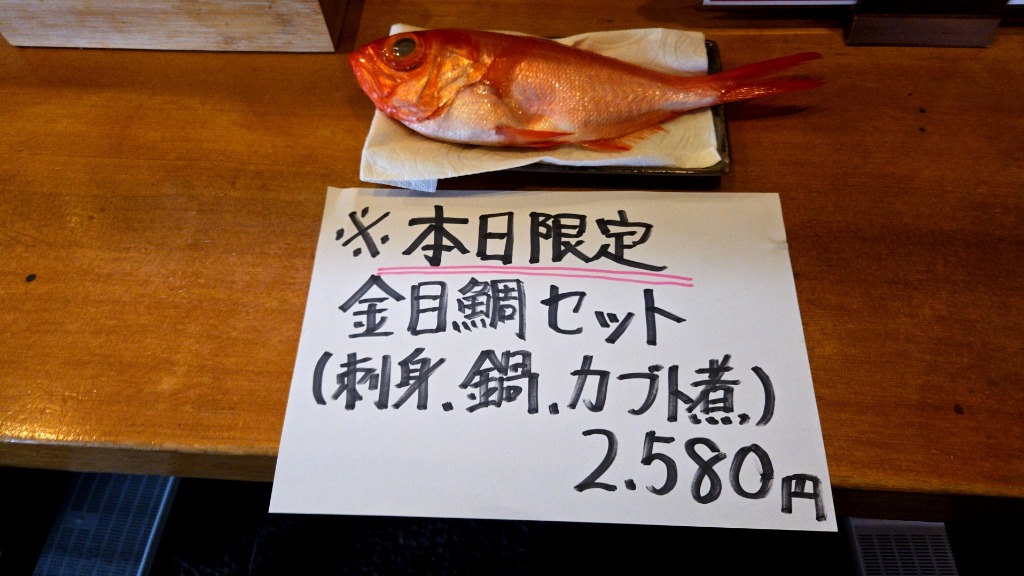 ※本日限定
金目鯛セット
(刺身.鍋.カブト煮)
2.580円